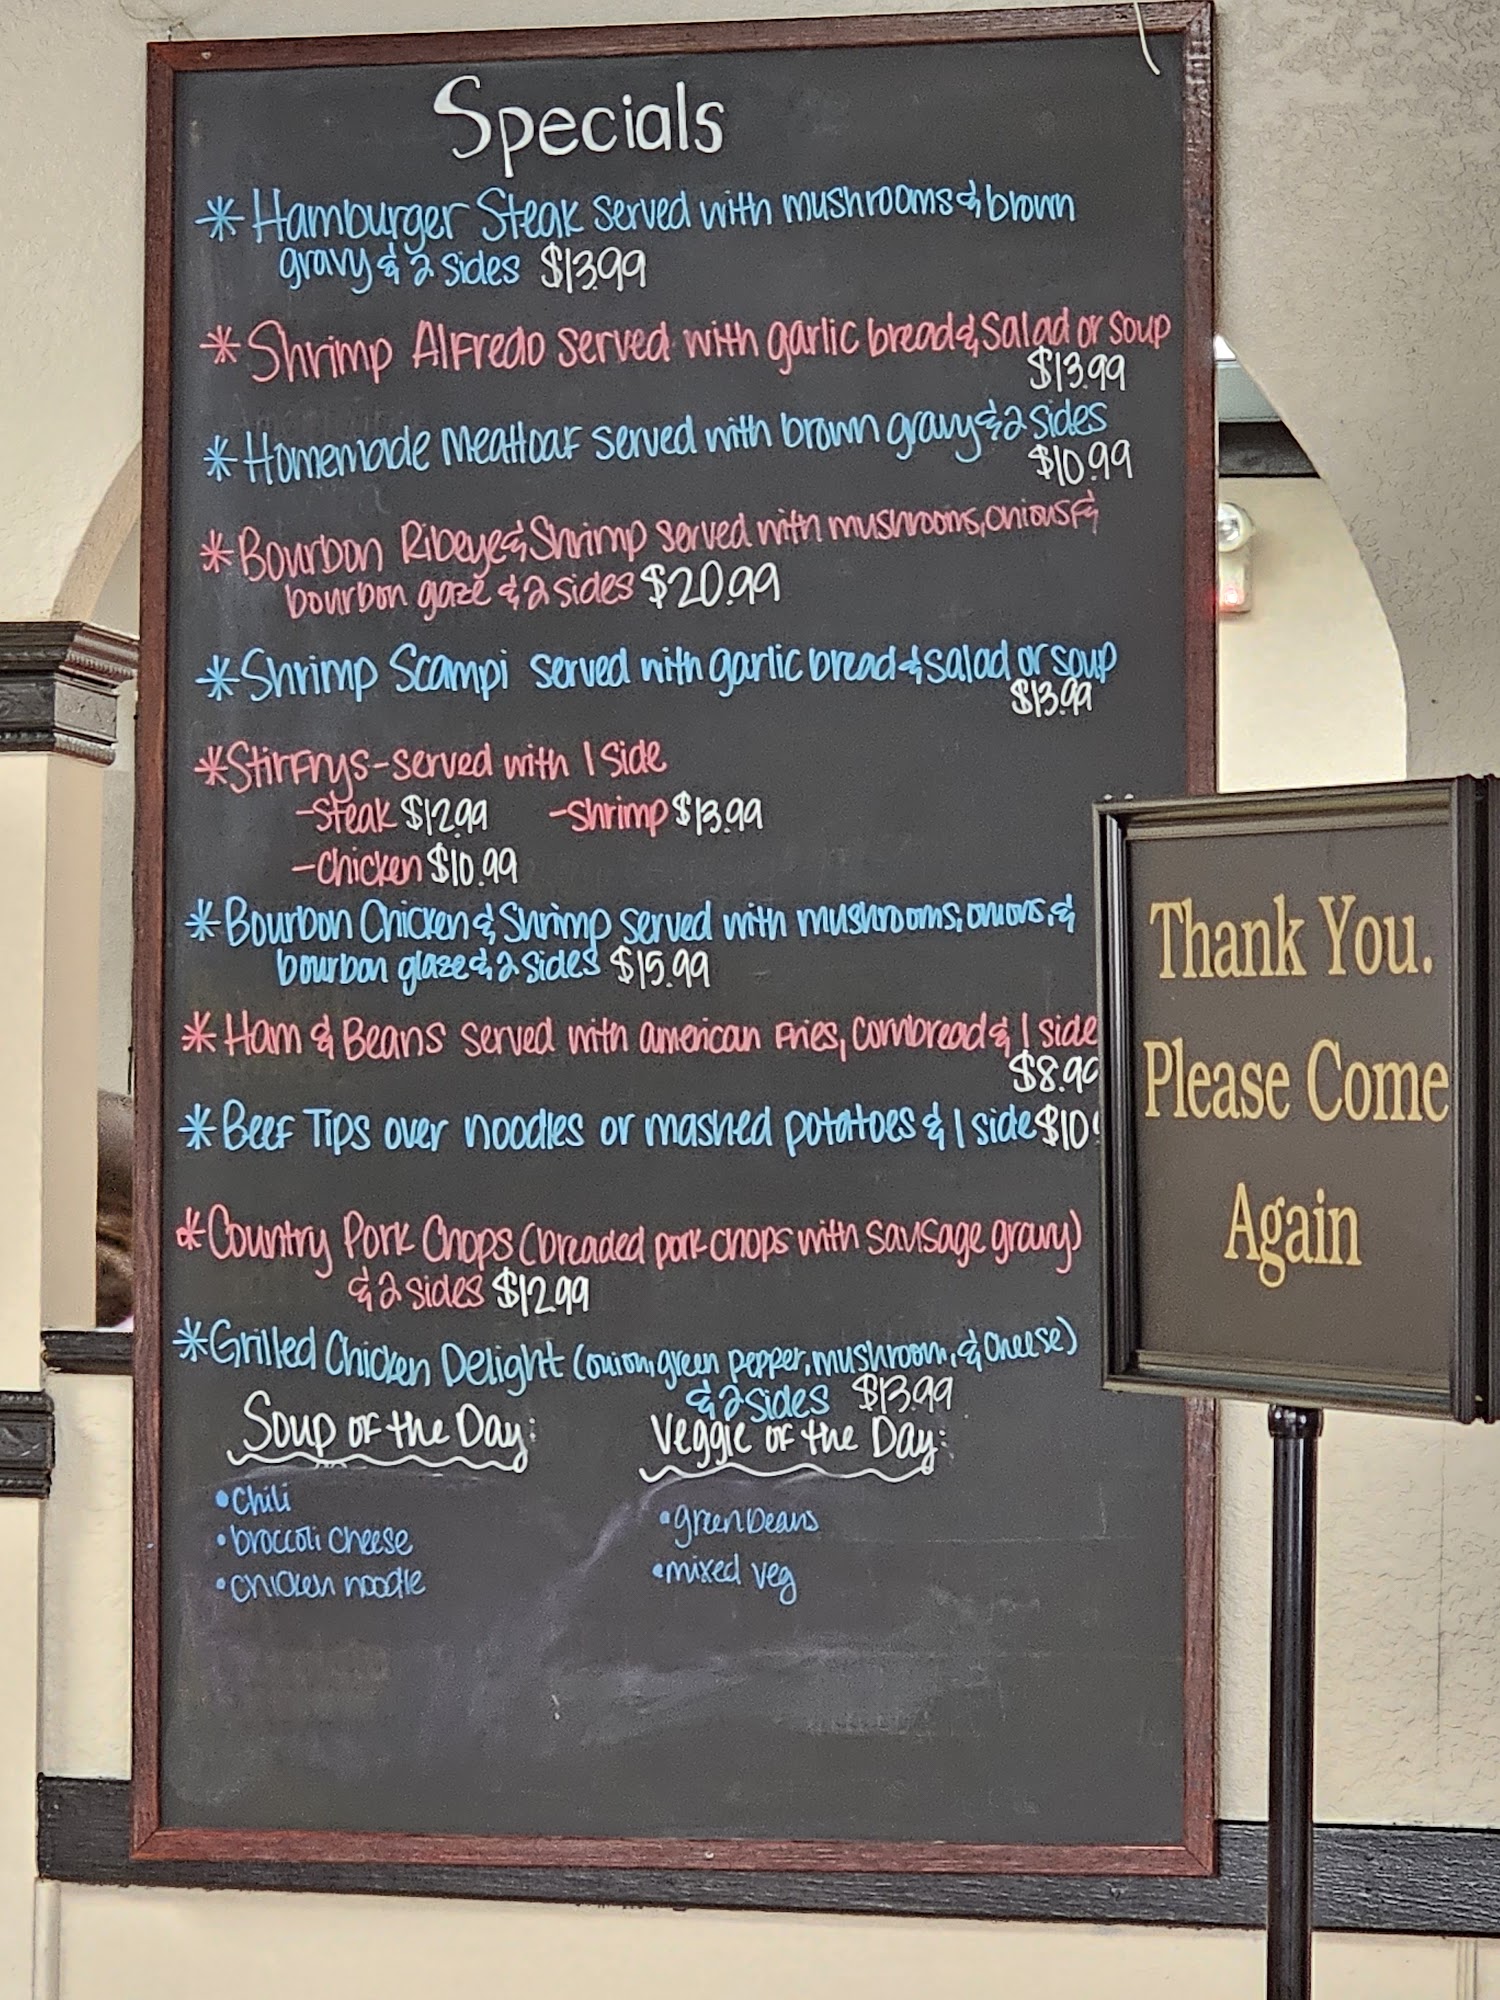 Specials
* Hamburger Steak served with mushrooms & brown
gravy & 2 sides $13.99
* Shrimp Alfredo served with garlic bread & salad or soup
$13.99
* Homemade Meatloaf served with brown gravy & 2 sides
$10.99
* Bourbon Ribeye & Shrimp served with mushrooms, onions &
bourbon gaze & 2 sides $20.99
* Shrimp Scampi served with garlic bread & salad or soup
$13.99
* Stirfrys - served with 1 side
- steak $12.99 - shrimp $13.99
- chicken $10.99
* Bourbon Chicken & Shrimp served with mushrooms, onions &
bourbon glaze & 2 sides $15.99
* Ham & Beans served with american fries, cornbread & 1 side
$8.99
* Beef Tips over noodles or mashed potatoes & 1 side $10
* Country Pork Chops (breaded pork chops with sausage gravy)
& 2 sides $12.99
* Grilled Chicken Delight (onion, green pepper, mushroom, & cheese)
& 2 sides $13.99
Soup of the Day:
• chili
• broccoli cheese
• chicken noodle
Veggie of the Day:
• green beans
• mixed veg
Thank You.
Please Come
Again